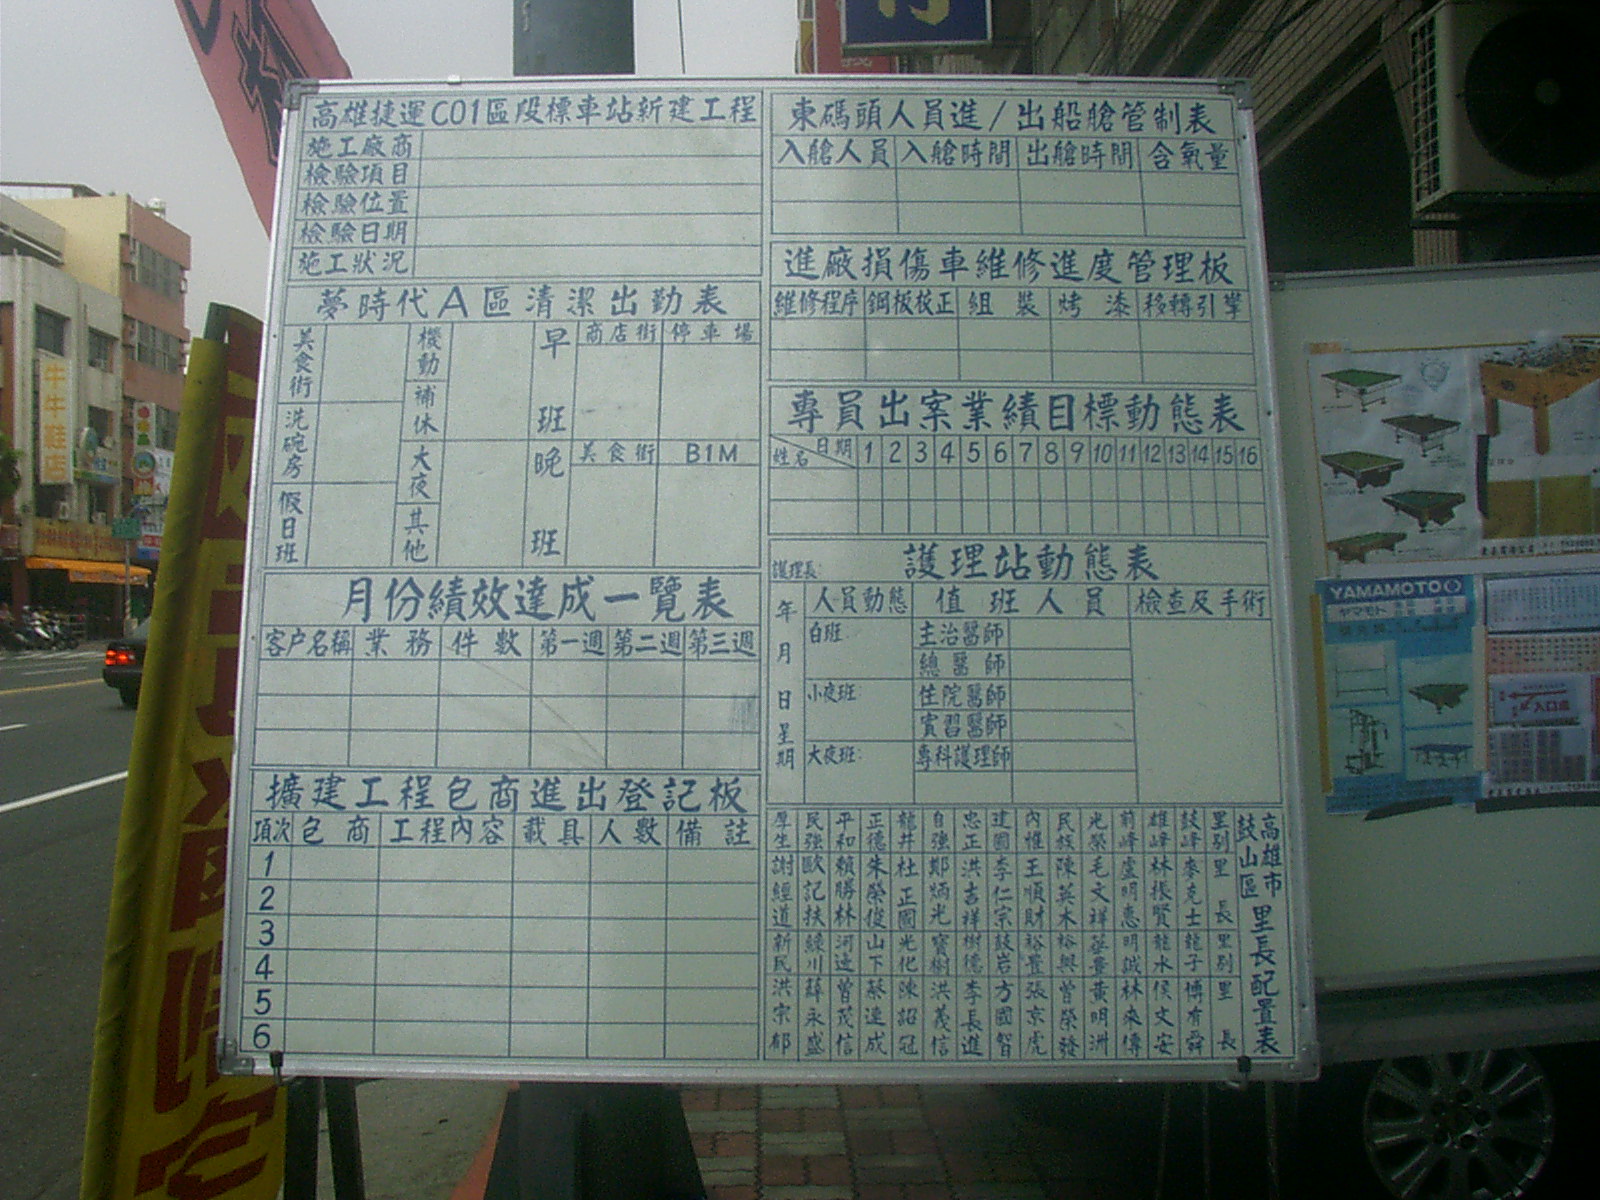 高雄捷運C01區段標車站新建工程
施工廠商
檢驗項目
檢驗位置
檢驗日期
施工狀況
夢時代A區清潔出勤表
美食街
洗碗房
假日班
機動
補休
大夜
其他
早班
晚班
商店街 停車場
美食街 B1M
月份績效達成一覽表
客户名稱 業務 件數 第一週 第二週 第三週
擴建工程包商進出登記板
項次 包商 工程內容 載具 人數 備註
1
2
3
4
5
6
東碼頭人員進/出船艙管制表
入艙人員 入艙時間 出艙時間 含氧量
進廠損傷車維修進度管理板
維修程序 鋼板校正 組裝 烤漆 移轉引擎
專員出案業績目標動態表
姓名 日期 1 2 3 4 5 6 7 8 9 10 11 12 13 14 15 16
護理站動態表
護理長:
年月日星期
人員動態 值班人員 檢查及手術
白班:
小夜班:
大夜班:
主治醫師
總醫師
住院醫師
實習醫師
專科護理師
高雄市
鼓山區
里長配置表
里別 鼓峰 雄峰 前峰 光榮 民族 內惟 建國 忠正 自強 龍井 正德 平和 民強 厚生
里長 麥克士 林振賢 盧明惠 毛文祥 陳英木 王順財 李仁宗 洪吉祥 鄭炳光 杜正國 朱榮俊 賴勝林 歐記扶 謝經道
里別 龍子 龍水 明誠 華豐 裕興 裕豐 鼓岩 樹德 寶樹 光化 山下 河邊 綠川 新民
里長 傅有舜 侯文安 林來傳 黃明洲 曾榮發 張京虎 方國智 李長進 洪茂信 陳詔冠 蔡連成 曾茂信 薛永盛 洪宗郁
牛牛鞋店
YAMAMOTO
ヤマモト
入口處